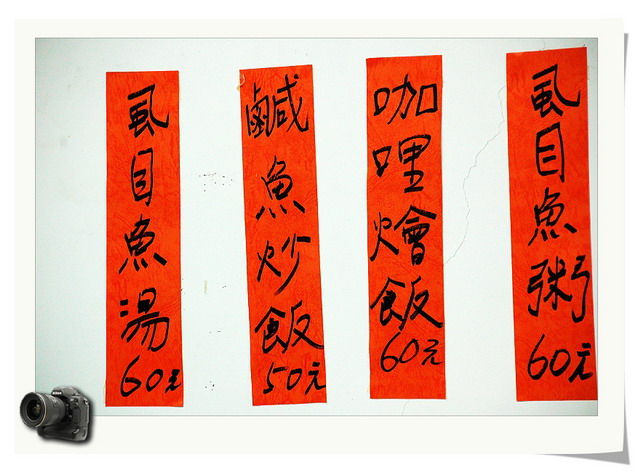 虱目魚湯60元
鹹魚炒飯50元
咖哩燴飯60元
虱目魚粥60元